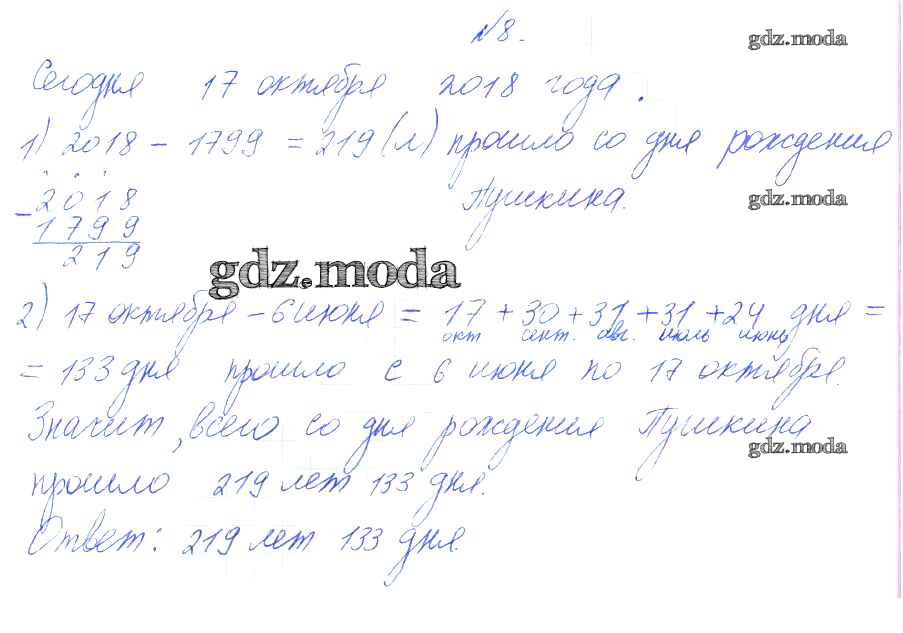 №8.
gdz.moda
Сегодня 17 октября 2018 года.
1) 2018 - 1799 = 219 (л) прошло со дня рождения
Пушкина.
gdz.moda
- 2018
1799
219
gdz.moda
2) 17 октября - 6 июня = 17 + 30 + 31 + 31 + 24 дня =
окт сент. авг. июль июнь
= 133 дня прошло с 6 июня по 17 октября.
Значит, всего со дня рождения Пушкина
gdz.moda
прошло 219 лет 133 дня.
Ответ: 219 лет 133 дня.